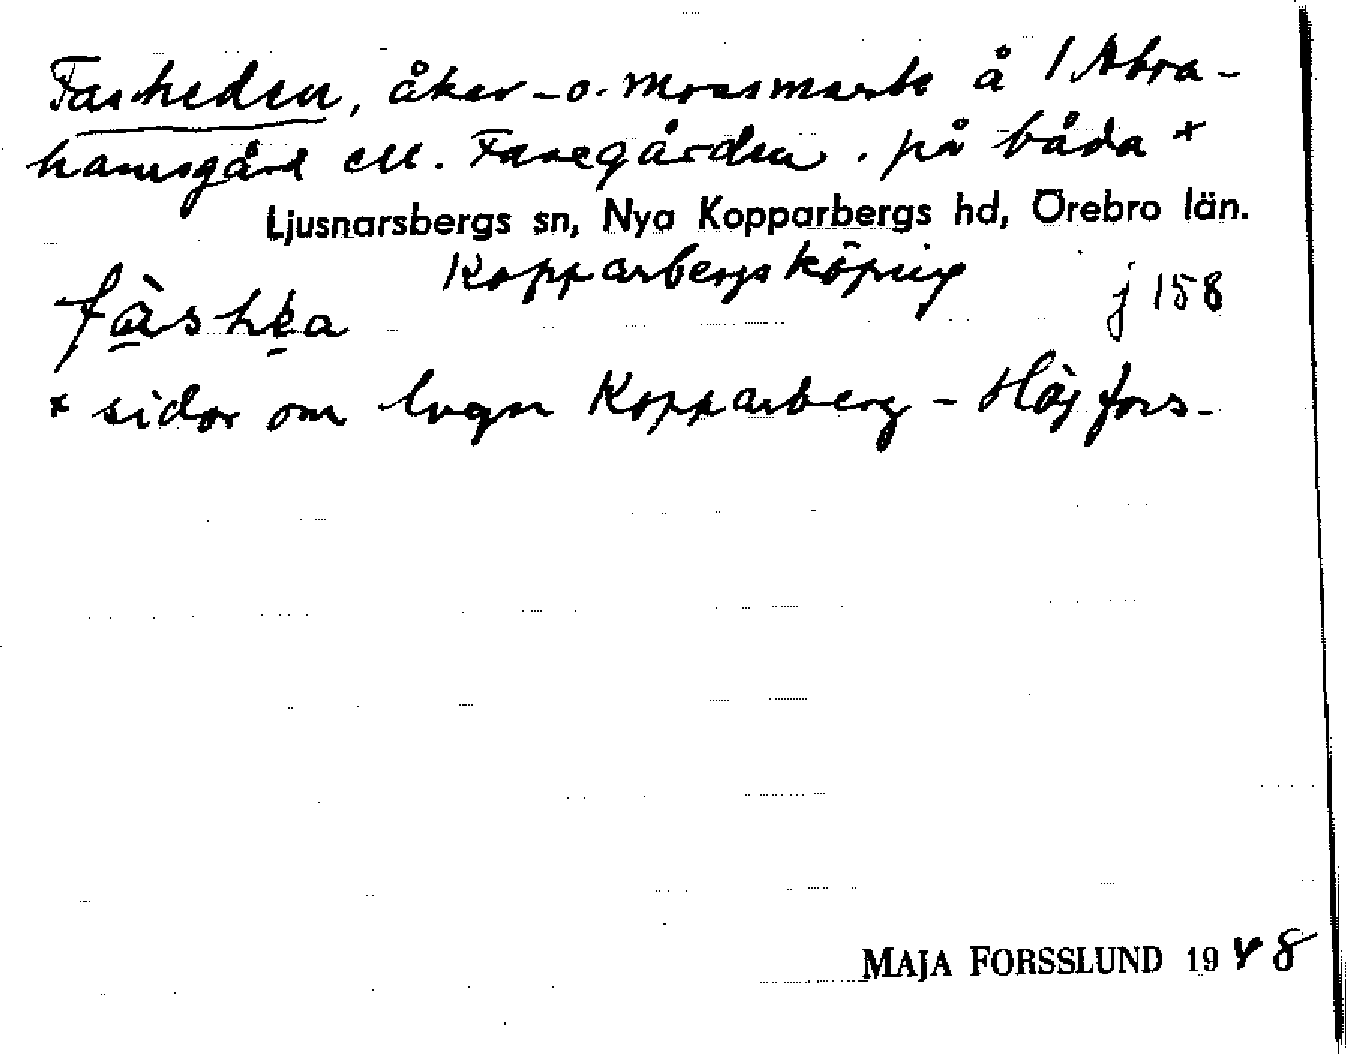 Fasheden, åker- o. mossmark å 1 Abra-
hamsgård ell. Fasegården. på båda x
Ljusnarsbergs sn, Nya Kopparbergs hd, Örebro län.
Kopparbergs köping
fàshèa j 158
x sidor om vägen Kopparberg - Högfors-
MAJA FORSSLUND 1948